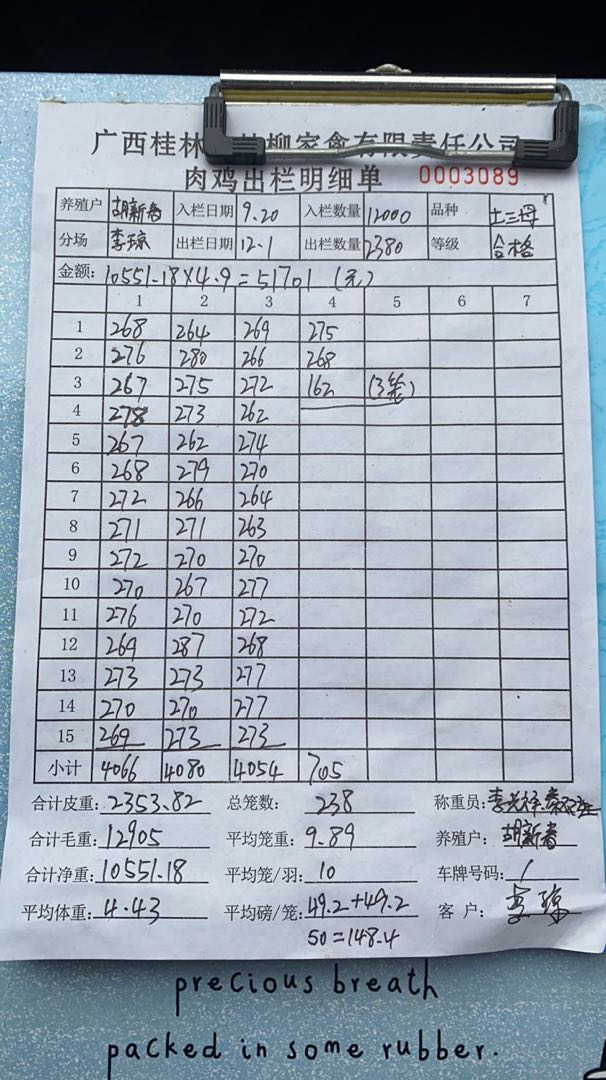 广西桂林 柳家禽有限责任公司
肉鸡出栏明细单 0003089
养殖户 胡新春 入栏日期 9.20 入栏数量 12000 品种 土三母
分场 李琼 出栏日期 12.1 出栏数量 2380 等级 合格
金额: 10551.18×4.9=51701 (元)
1 2 3 4 5 6 7
1 268 264 269 275
2 276 280 266 268
3 267 275 272 162 (3笼)
4 278 273 262
5 267 262 274
6 268 279 270
7 272 266 264
8 271 271 263
9 272 270 270
10 270 267 277
11 276 270 272
12 269 287 268
13 273 273 277
14 270 270 277
15 269 273 273
小计 4066 4080 4054 705
合计皮重: 2353.82 总笼数: 238 称重员:
合计毛重: 12905 平均笼重: 9.89 养殖户: 胡新春
合计净重: 10551.18 平均笼/羽: 10 车牌号码: /
平均体重: 4.43 平均磅/笼: 49.2+49.2 客 户: 李琼
50=148.4
precious breath
packed in some rubber.